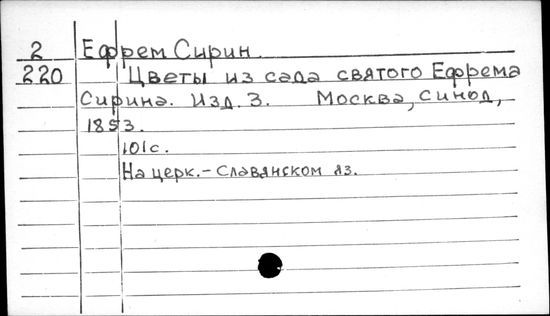 2 Ефрем Сирин.
220 Цветы из сада святого Ефрема
Сирина. Изд. 3. Москва, синод,
1853.
101с.
На церк.-Славянском яз.